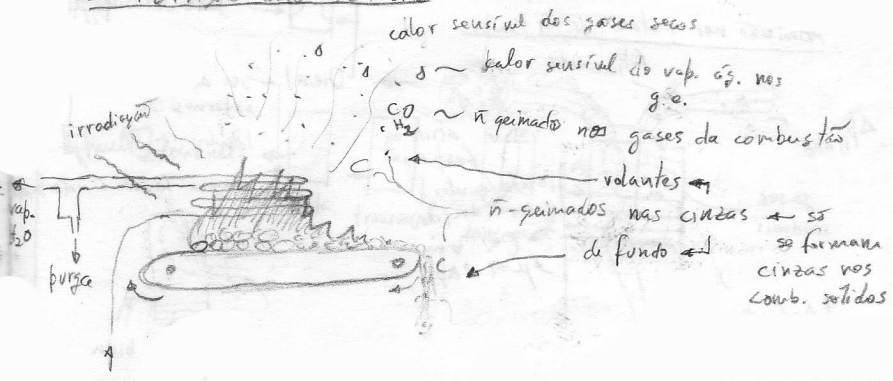 calor sensível dos gases secos
calor sensível do vap. ág. nos
g.e.
CO
H2
ñ queimados nos gases da combustão
irradiação
C
volantes
ñ-queimados nas cinzas ← só
se formam
cinzas nos
comb. sólidos
de fundo
C
vap.
H2O
purga